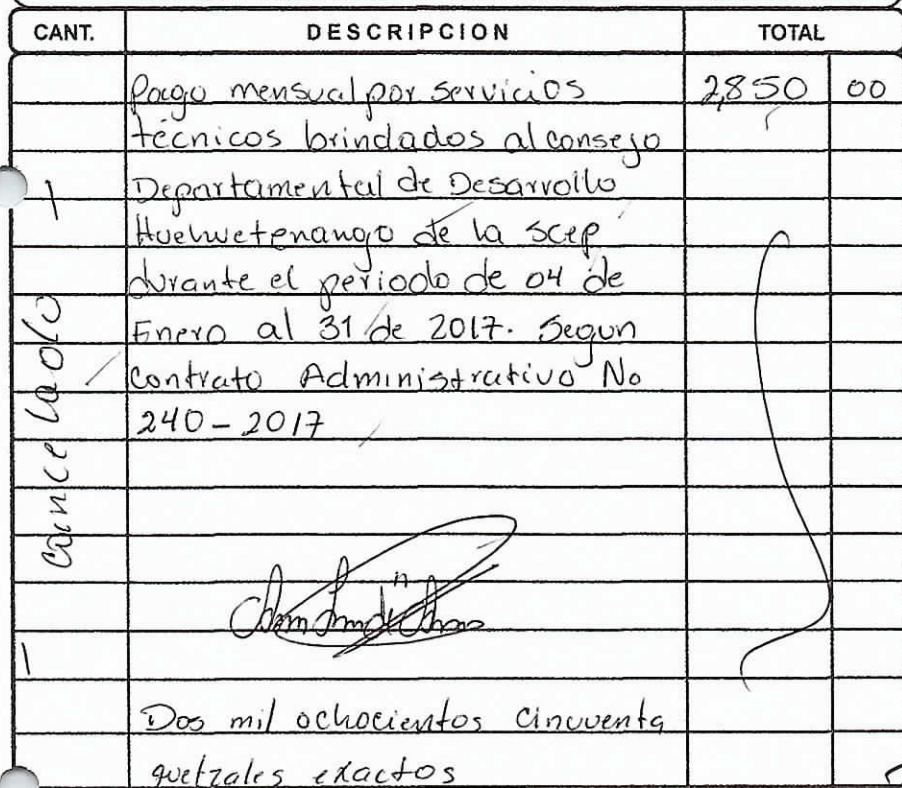 CANT. DESCRIPCION TOTAL
Pago mensual por servicios 2,850 00
técnicos brindados al consejo
Departamental de Desarrollo
Huehuetenango de la scep
durante el periodo de 04 de
Enero al 31 de 2017. Segun
Contrato Administrativo No
240-2017
- Cancelado -
Dos mil ochocientos cincuenta
quetzales exactos